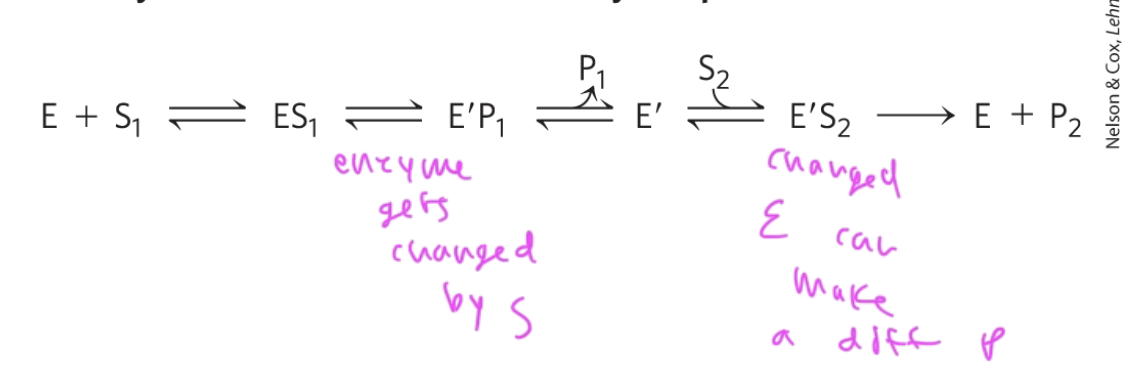 P₁ S₂
E + S₁ ⇌ ES₁ ⇌ E′P₁ ⇌ E′ ⇌ E′S₂ → E + P₂
enzyme
gets
changed
by S
changed
E can
make
a diff P
Nelson & Cox, Lehn